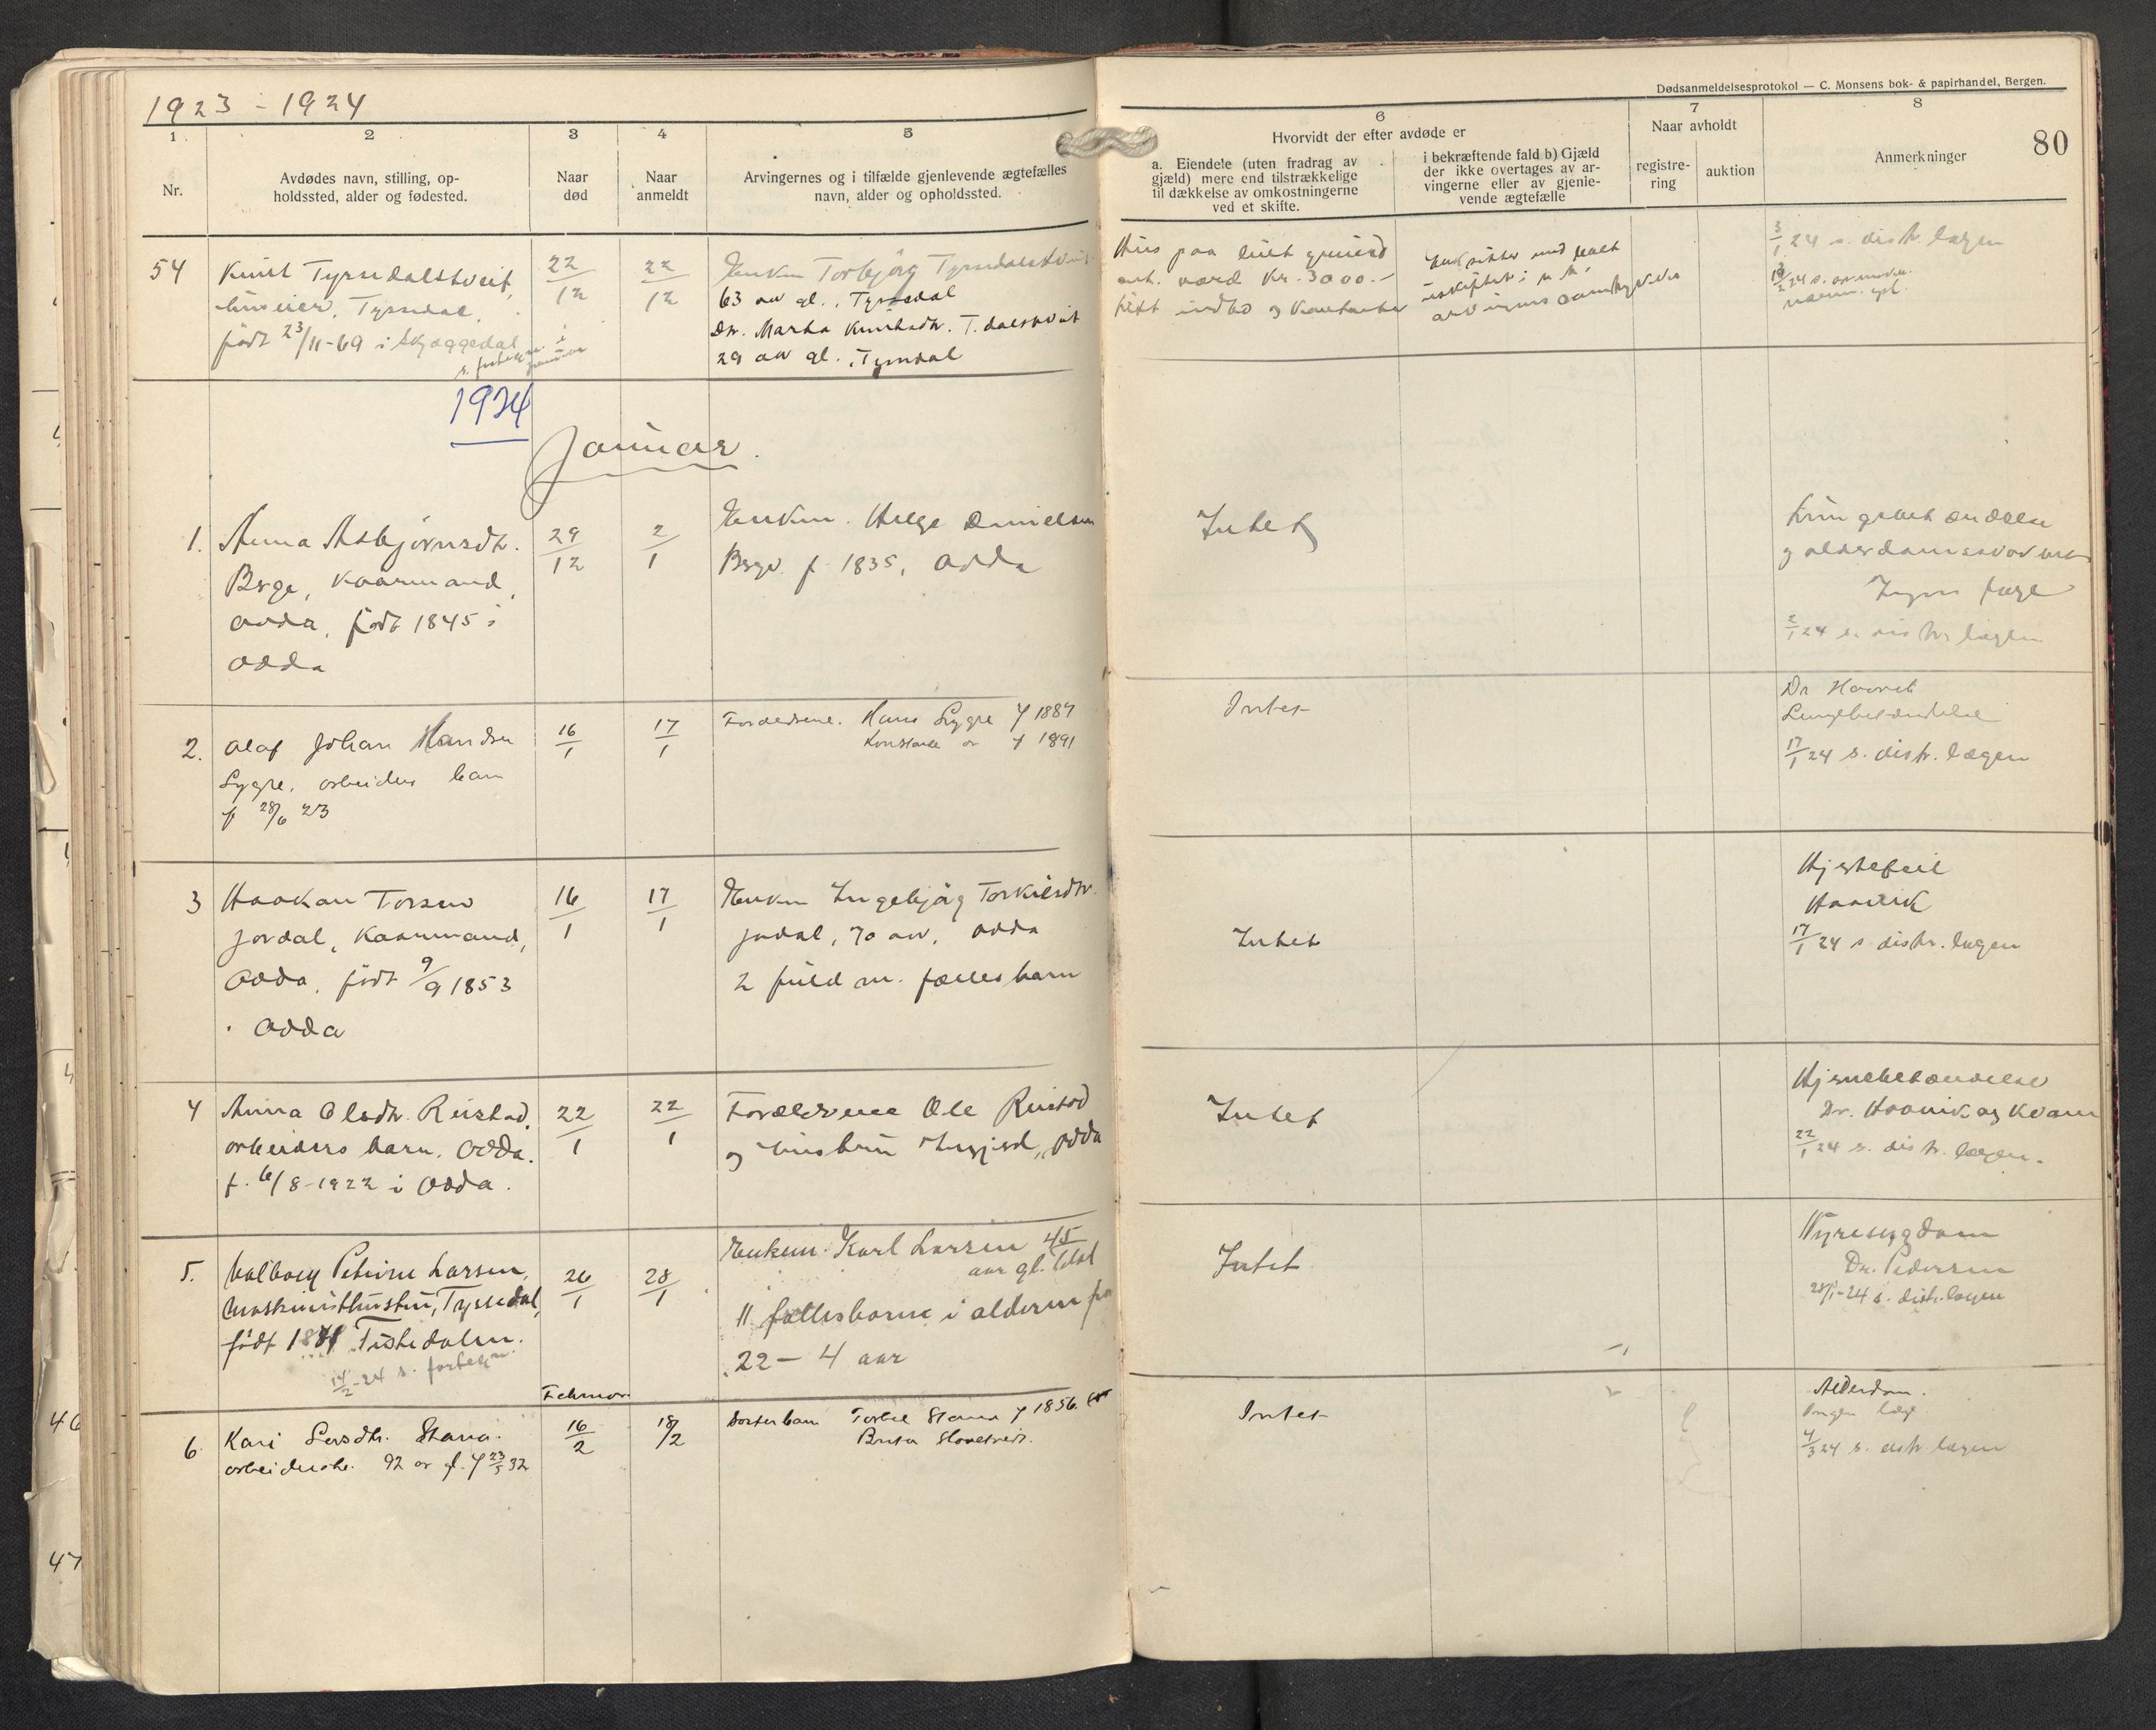 1923 - 1924
Dødsanmeldelsesprotokol — C. Monsens bok- & papirhandel, Bergen.
80
1
2
3
4
5
6
7
8
Nr.
Avdødes navn, stilling, op-
holdssted, alder og fødested.
Naar
død
Naar
anmeldt
Arvingernes og i tilfælde gjenlevende ægtefælles
navn, alder og opholdssted.
Hvorvidt der efter avdøde er
a. Eiendele (uten fradrag av
gjæld) mere end tilstrækkelige
til dækkelse av omkostningerne
ved et skifte.
i bekræftende fald b) Gjæld
der ikke overtages av ar-
vingerne eller av gjenle-
vende ægtefælle
Naar avholdt
registre-
ring
auktion
Anmerkninger
54
Knut Tyssedalstveit,
huseier, Tyssedal,
født 23/11-69 i Skjæggedal
22/12
22/12
Enken Torbjørg Tyssedalstveit
63 aar gl., Tyssedal
Dr. Marta Knutsdtr. T.dalstveit
29 aar gl., Tyssedal
Hus paa leiet grund
ant. værd Kr. 3000.-
litt indbo og
3/1 24 s. distr. lægen
1924
Januar.
1.
Anna Asbjørnsdtr.
Berge, kaarmand,
Odda, født 1845 i
Odda
29/12
2/1
Enkem. Helge Danielsen
Berge f. 1835, Odda
Intet
og alderdomssvækkelse
Ingen læge
2/1 24 s. distr. lægen
2.
Olaf Johan Hansen
Lygre, arbeiders barn
f 28/6 23
16/1
17/1
Forældrene. Hans Lygre f 1887
f 1891
Intet
Dr Haavik
Lungebetændelse
17/1 24 s. distr. lægen
3
Haakon Torsen
Jordal, kaarmand,
Odda, født 9/9 1853
i Odda
16/1
17/1
Enken Ingebjørg Torkilsdtr.
Jordal, 70 aar, Odda
2 fuld m. fællesbarn
Intet
Hjertefeil
Haavik
17/1 24 s. distr. lægen
4
Anna Olsdtr. Reistad,
arbeiders barn, Odda.
f. 6/8-1922 i Odda.
22/1
22/1
Forældrene Ole Reistad
og hustru Ingjerd, Odda
Intet
Hjernebetændelse
Dr. Haavik og Kvam
22/1 24 s. distr. lægen.
5.
Valborg Petrine Larsen,
maskinisthustru, Tyssedal,
født 1881 Tistedalen.
14/2-24 s. fortegn.
26/1
28/1
Enkem. Karl Larsen 45
aar gl.
11 fællesbarn i alderen fra
22 – 4 aar
Intet
Nyresygdom
Dr. Pedersen
28/1-24 s. distr.lægen
Februar
6.
Kari Larsdtr. Stana.
92 år gl. f 23/5 32
16/2
18/2
Søsterbarn Torbel Stana f 1856.
Brita
Intet
Alderdom.
Ingen læge
4/3 24 s. distr lægen
46
47